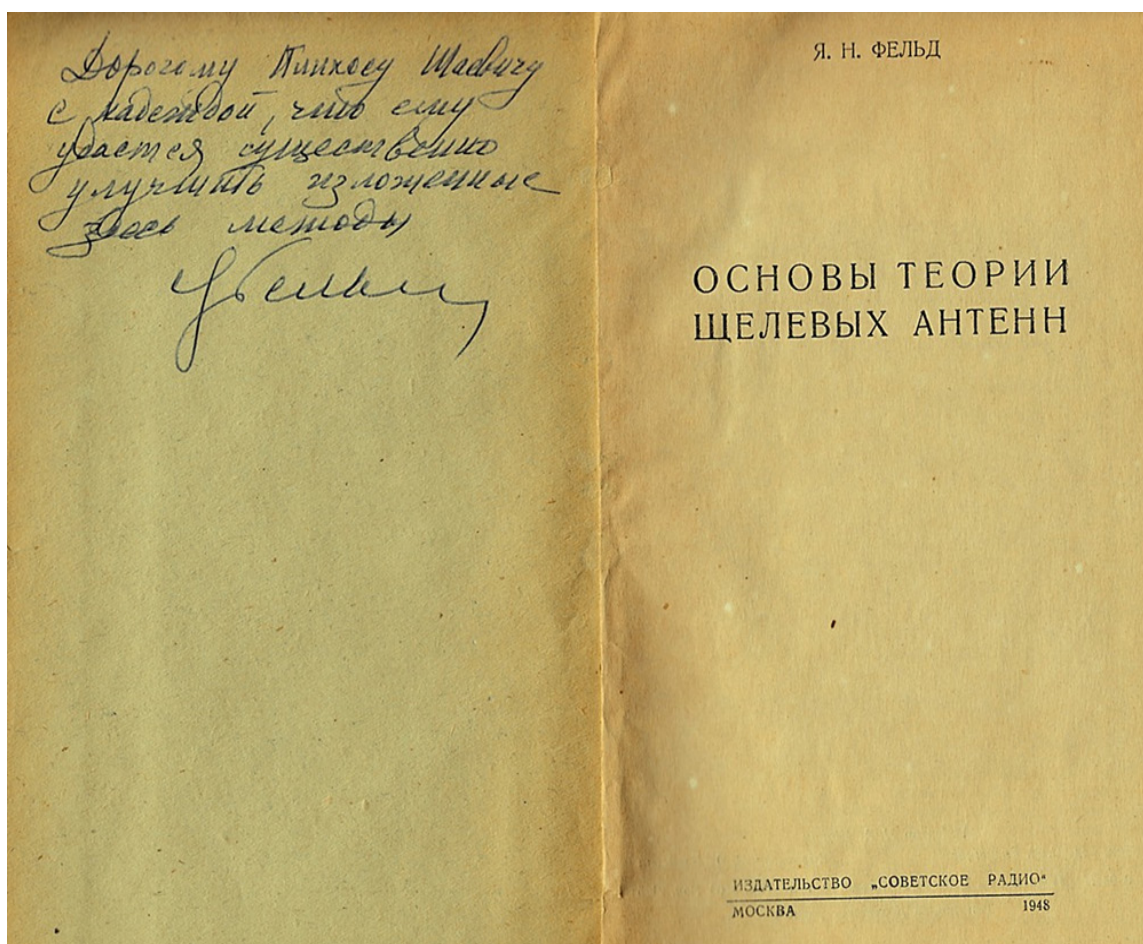 Дорогому Пинхосу Шаевичу
с надеждой, что ему
удастся существенно
улучшить изложенные
здесь методы
Я. Н. ФЕЛЬД
ОСНОВЫ ТЕОРИИ
ЩЕЛЕВЫХ АНТЕНН
ИЗДАТЕЛЬСТВО „СОВЕТСКОЕ РАДИО“
МОСКВА 1948